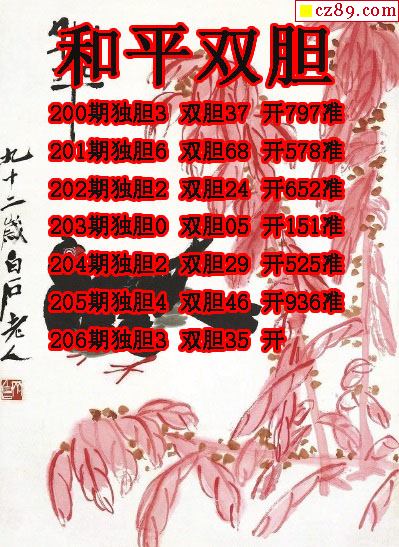 cz89.com
和平双胆
200期独胆3 双胆37 开797准
201期独胆6 双胆68 开578准
202期独胆2 双胆24 开652准
203期独胆0 双胆05 开151准
204期独胆2 双胆29 开525准
205期独胆4 双胆46 开936准
206期独胆3 双胆35 开
九十二歲白石老人